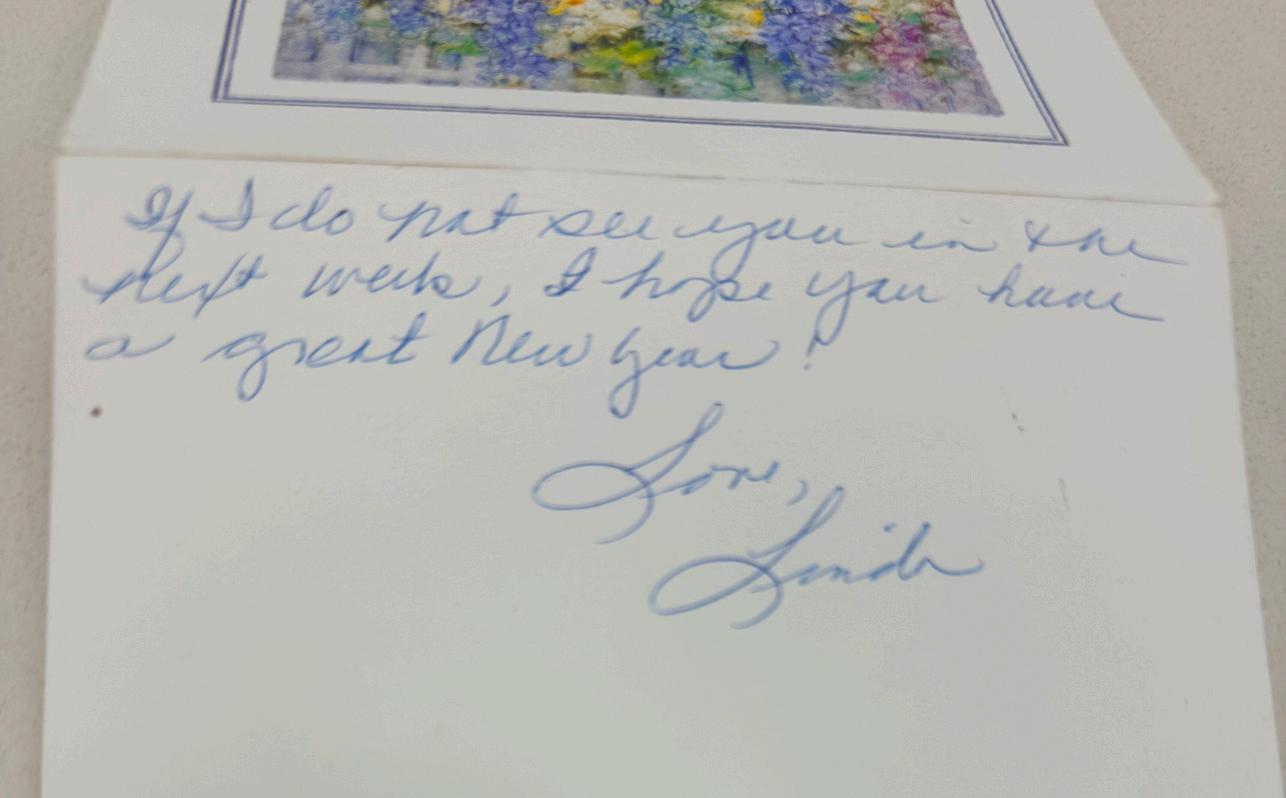 If I do not see you in the
next week, I hope you have
a great New Year!
Love,
Linda